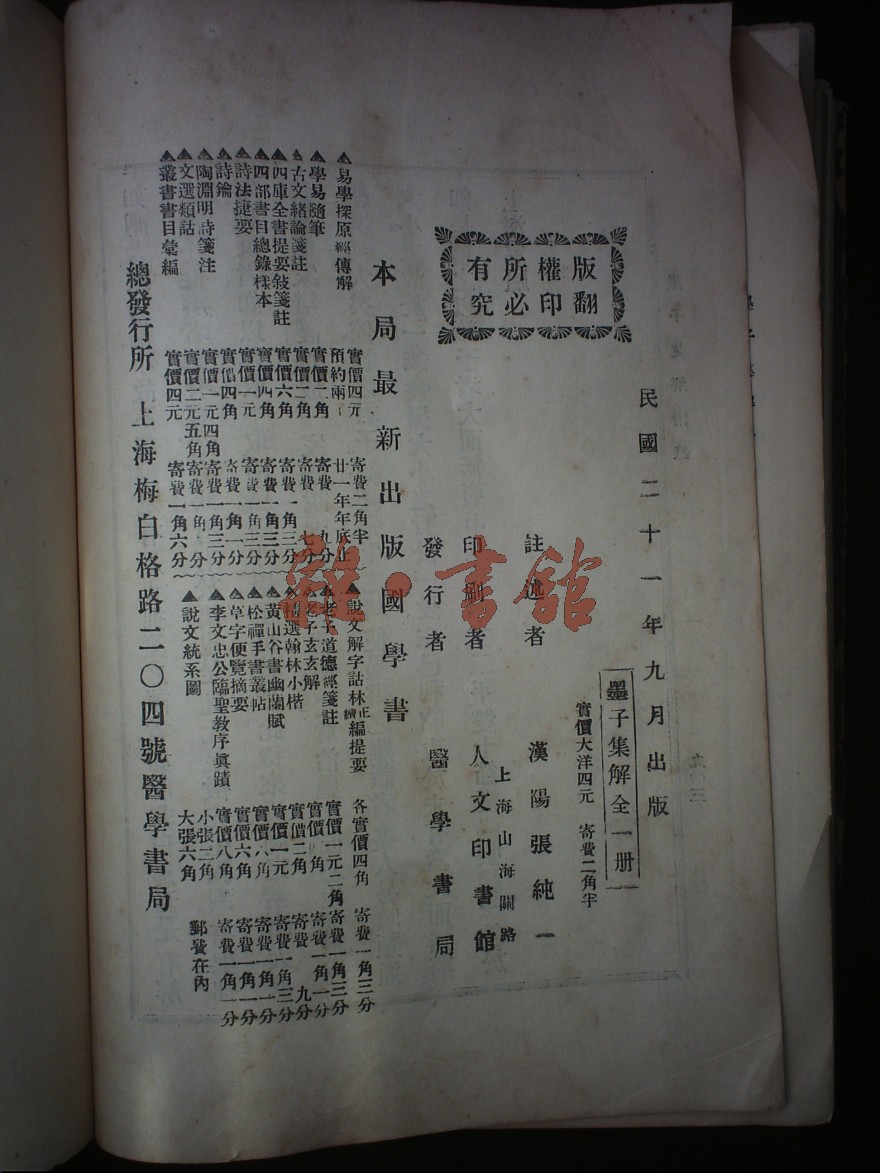 民國二十一年九月出版
墨子集解全一册
實價大洋四元　寄費二角半
註述者　漢陽張純一
上海山海關路
印刷者　人文印書館
發行者　醫學書局
版權所有
翻印必究
本局最新出版國學書
▲易學探原經傳解　實價四元　寄費二角半
預約兩　廿一年年底止
▲學易隨筆　實價二角　寄費　九分
▲古文緒論箋註　實價二角　寄費　七分
▲四庫全書提要敍箋註　實價六角　寄費一角三分
▲四部書目總錄樣本　實價四角　寄費一角三分
▲詩法捷要　實價一元　寄費一角三分
▲詩鑰　實價四角　寄費一角一分
▲陶淵明詩箋注　實價一元四角　寄費一角三分
▲文選類詁　實價二元五角　寄費一角　分
▲叢書書目彙編　實價四元　寄費一角六分
▲說文解字詁林正續編提要　各實價四角　寄費一角三分
▲老子道德經箋註　實價一元二角　寄費一角三分
老子玄玄解　實價　角　寄費一角一分
精選翰林小楷　實價二角　寄費　九分
▲黃山谷書幽蘭賦　實價一元　寄費一角三分
▲松禪手書叢帖　實價　角　寄費一角一分
▲草字便覽摘要　實價六角　寄費一角一分
▲李文忠公臨聖教序眞蹟　實價八角　寄費一角一分
▲說文統系圖　小張二角　大張六角　郵費在內
總發行所　上海梅白格路二〇四號醫學書局
雜·書館